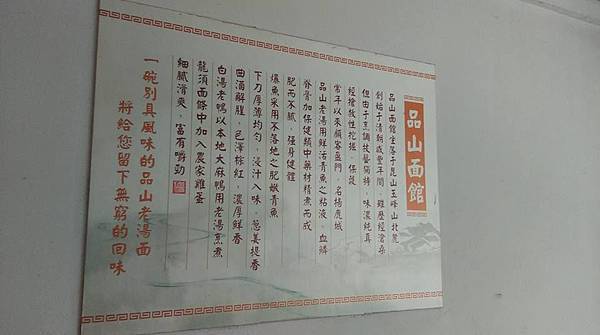 品山面館
品山面館坐落于昆山玉峰山北麓
創始于清朝咸豐年間，雖歷經滄桑
但由于烹調技藝獨特，味濃純真
經搶救性挖掘，保護
常年以來顧客盈門，名揚鹿城
品山老湯用鮮活青魚之粘液，血鱗
脊膏加保健類中藥材精煮而成
肥而不膩，強身健體
爆魚采用不落地之肥嫩青魚
下刀厚薄均勻，浸汁入味，蔥姜提香
曲酒解腥，色澤棕紅，濃厚鮮香
白湯老鴨以本地大麻鴨用老湯烹煮
龍須面條中加入農家雞蛋
細膩滑爽，富有嚼勁
一碗別具風味的品山老湯面
將給您留下無窮的回味